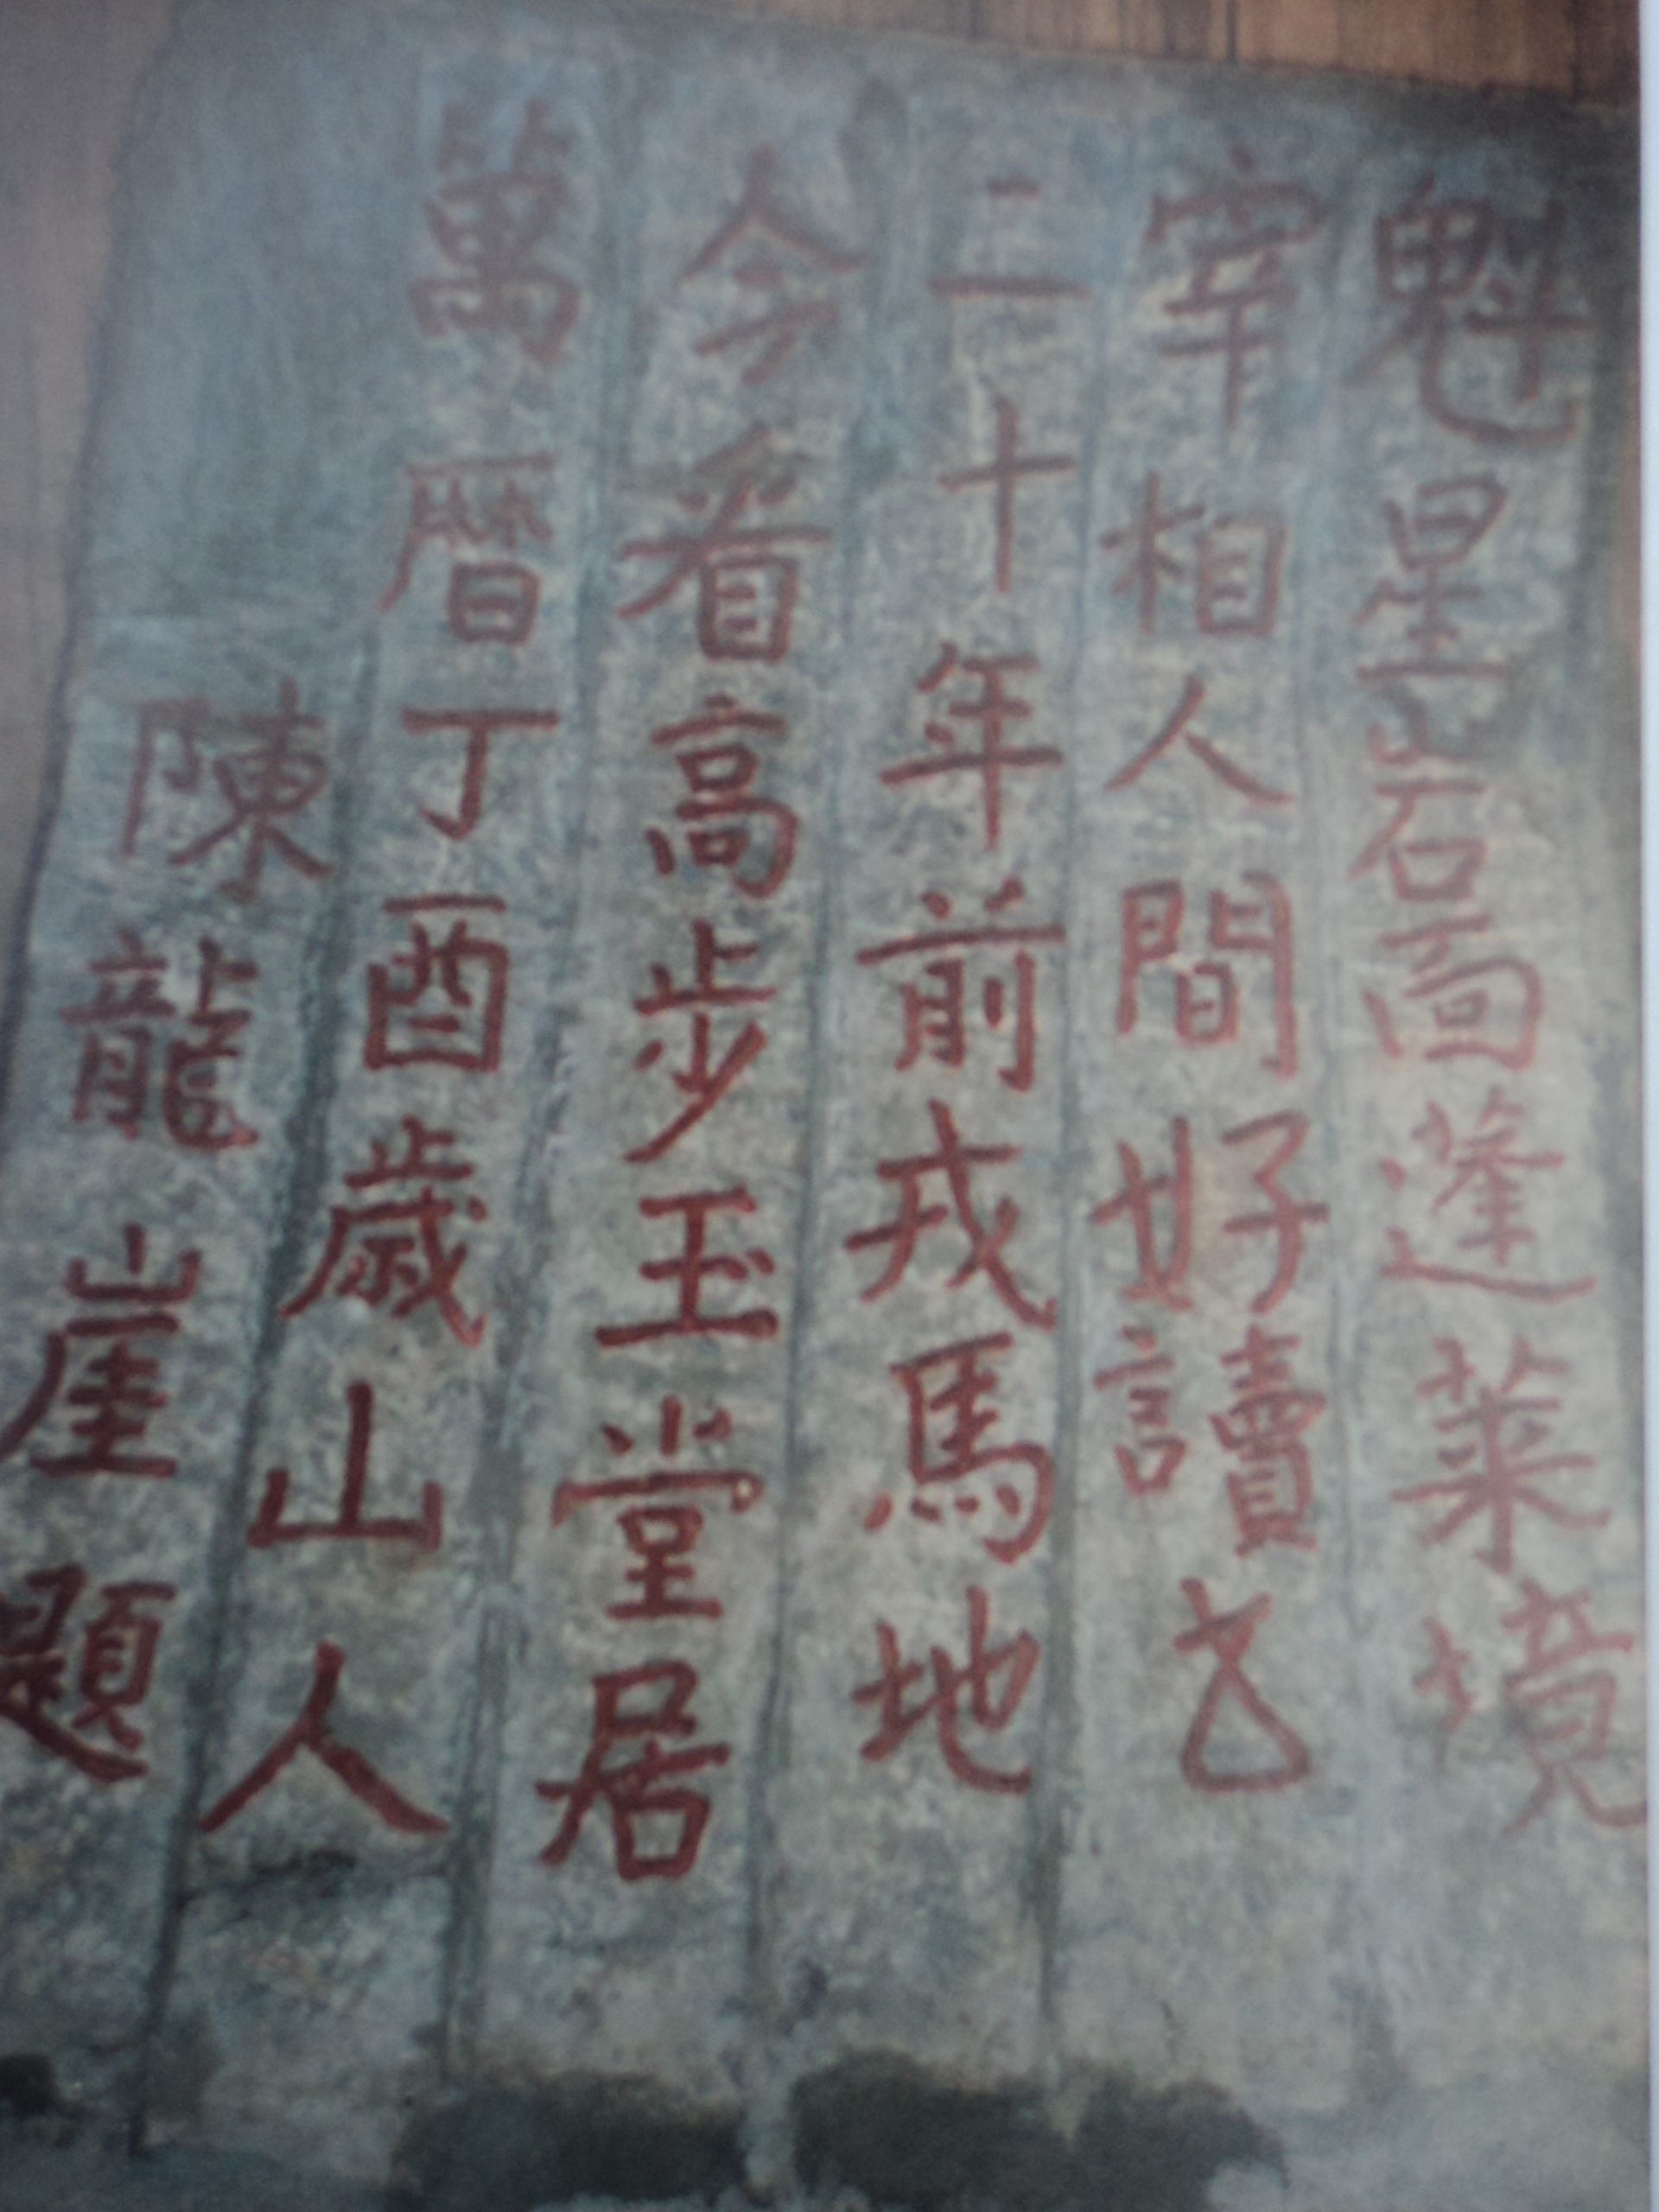 魁星岩面蓬萊境
宰相人間好讀書
二十年前戎馬地
今看高步玉堂居
萬暦丁酉歲山人
陳龍崖題